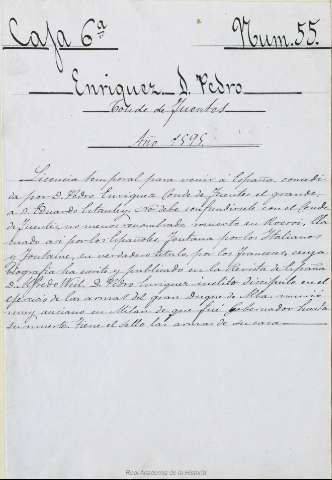 Caja 6ª Num. 55.
Enriquez D. Pedro
Conde de Fuentes
Año 1595
Licencia temporal para venir á España conced
da por D. Pedro Enriquez Conde de Fuentes el grande,
a D. Eduardo Estanley. No debe confundirsele con el Conde
de Fuentes, no menos renombrado muerto en Rocroi, lla
mado así por los Españoles, Fontana por los Italianos
y Fontaine, su verdadero titulo por los franceses, cuya
biografia ha escrito y publicado en la Revista de España
D. Alfredo Weil. D. Pedro Enriquez inclito discipulo en el
ejercicio de las armas del gran Duque de Alba murió
muy anciano en Milan de que fué Gobernador hasta
su muerte. Tiene el sello las armas de su casa
Real Academia de la Historia